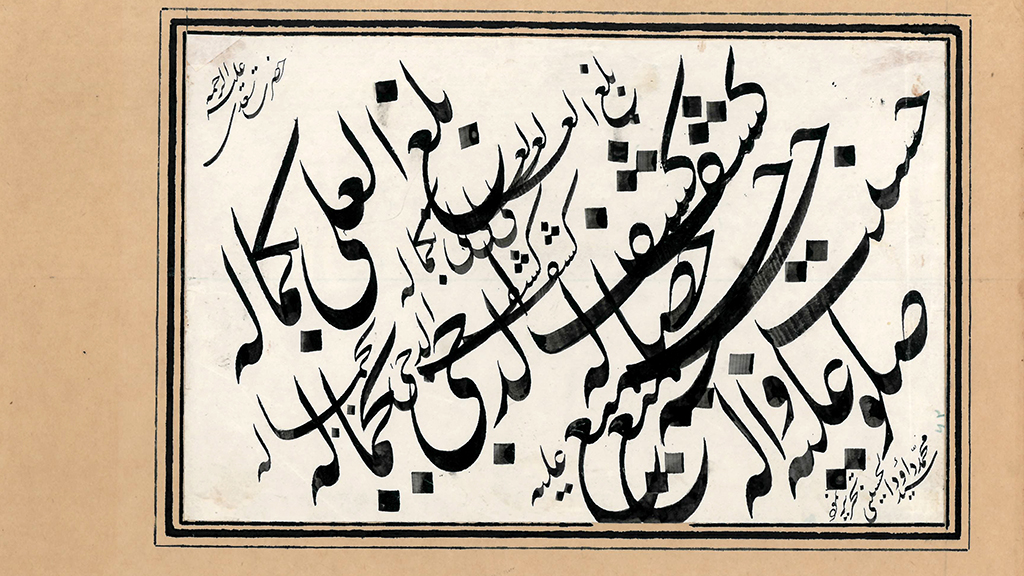 حضرت سعدی علیه الرحمه
بلغ العلی بکماله
کشف الدجی بجماله
حسنت جمیع خصاله
صلو علیه واله
بلغ العلی بکماله
کشف الدجی بجماله
علیه
سید محمد داود الحسینی